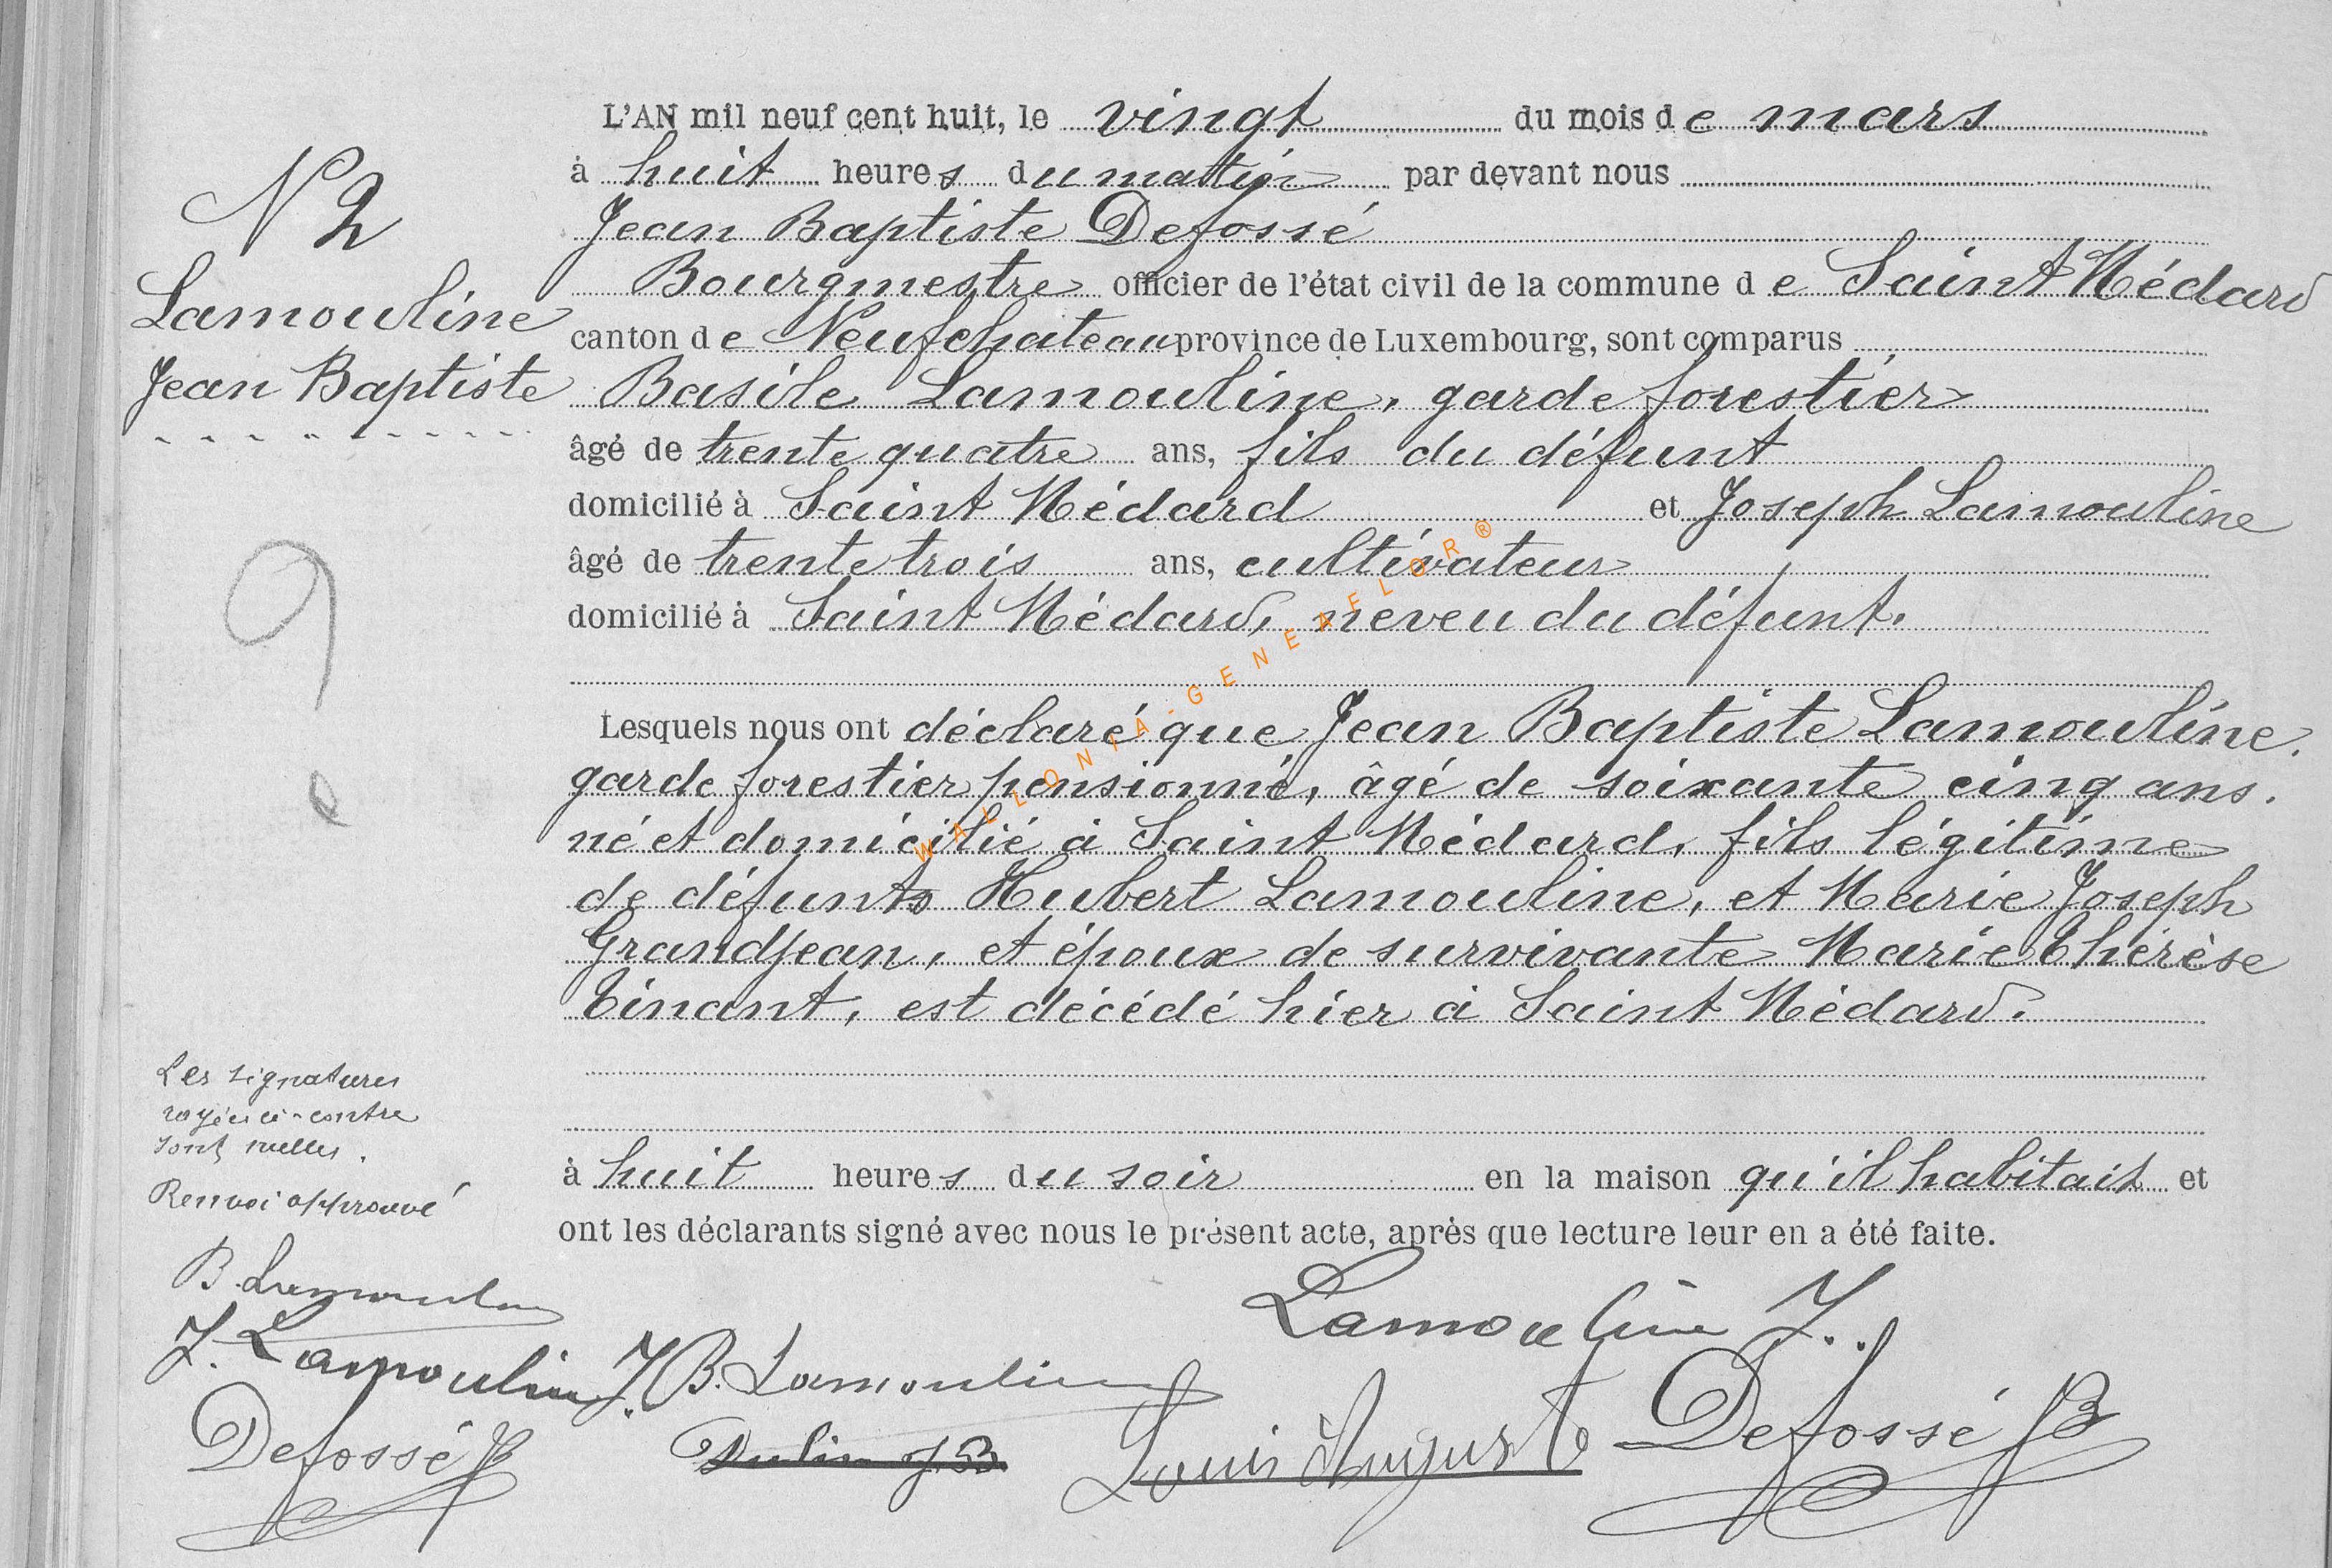 L'AN mil neuf cent huit, le vingt du mois de mars
à huit heures du matin par devant nous
Jean Baptiste Defossé
Bourgmestre officier de l'état civil de la commune de Saint Médard
canton de Neufchateau province de Luxembourg, sont comparus
Basile Lamouline, garde forestier
âgé de trente quatre ans, fils du défunt
domicilié à Saint Médard et Joseph Lamouline
âgé de trente trois ans, cultivateur
domicilié à Saint Médard, neveu du défunt.
Lesquels nous ont déclaré que Jean Baptiste Lamouline,
garde forestier pensionné, âgé de soixante cinq ans.
né et domicilié à Saint Médard, fils légitime
de défunts Hubert Lamouline, et Marie Joseph
Grandjean, et époux de survivante Marie Thérèse
Tinant, est décédé hier à Saint Médard.
à huit heures du soir en la maison qu'il habitait et
ont les déclarants signé avec nous le présent acte, après que lecture leur en a été faite.
Lamouline J.
J.B. Lamouline
Louis Auguste
Defossé JB
N 2
Lamouline
Jean Baptiste
9
Les signatures
rayées ci-contre
sont nulles.
Renvoi approuvé
B. Lamouline
J. Lamouline
Defossé JB
WALLONIA-GENEAFLOR®